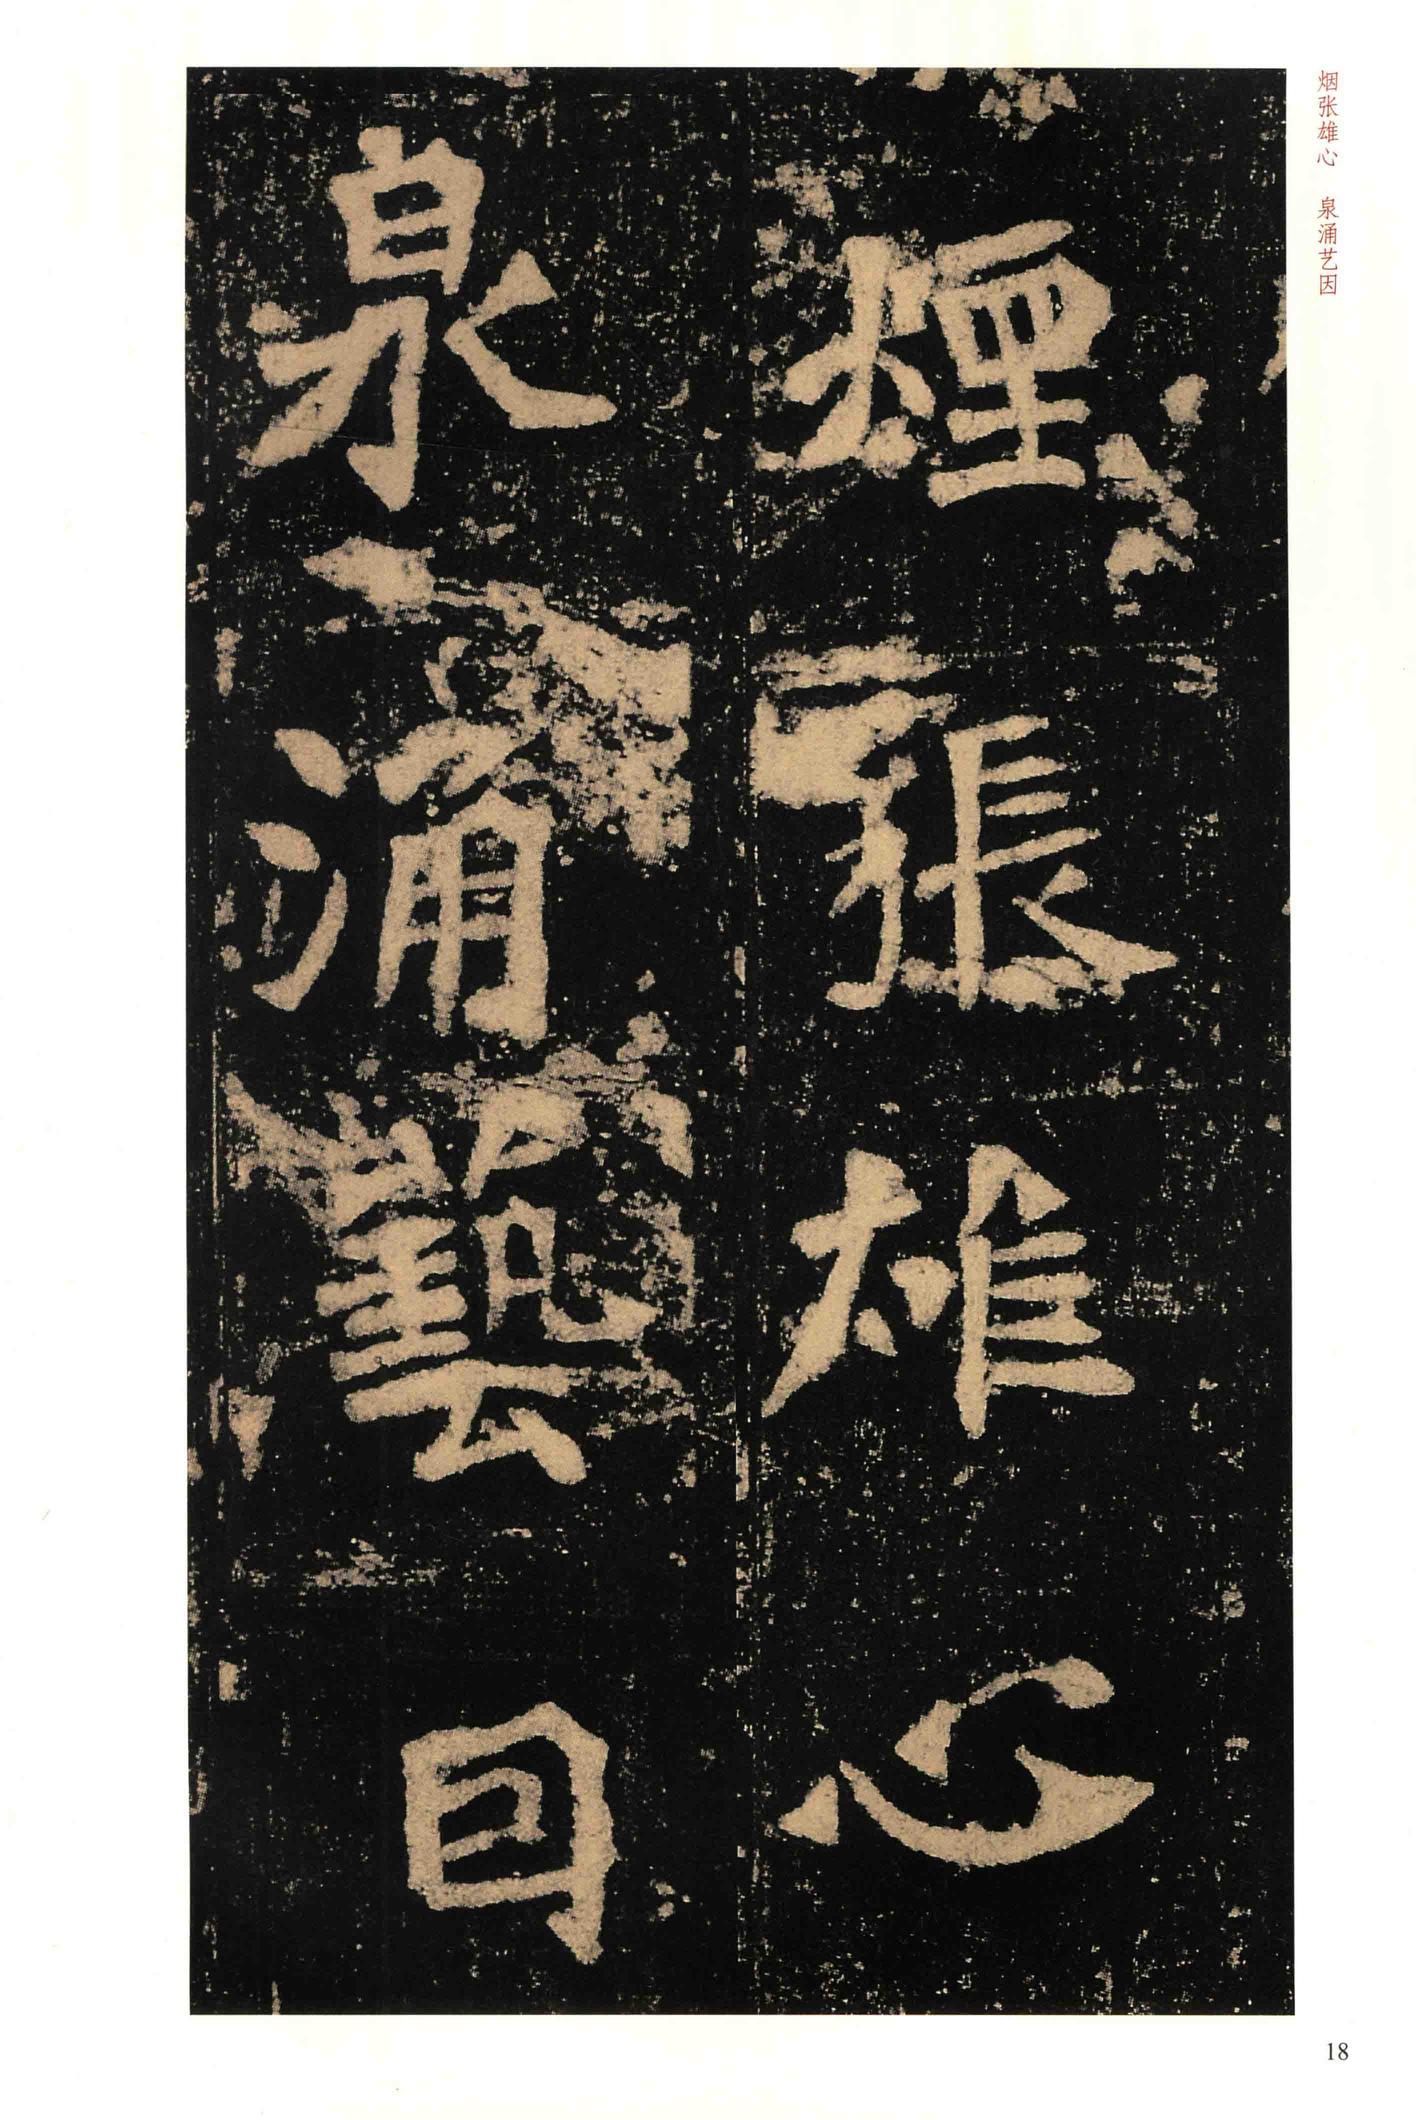 烟张雄心　泉涌艺因
煙張雄心
泉涌藝𡆮
18